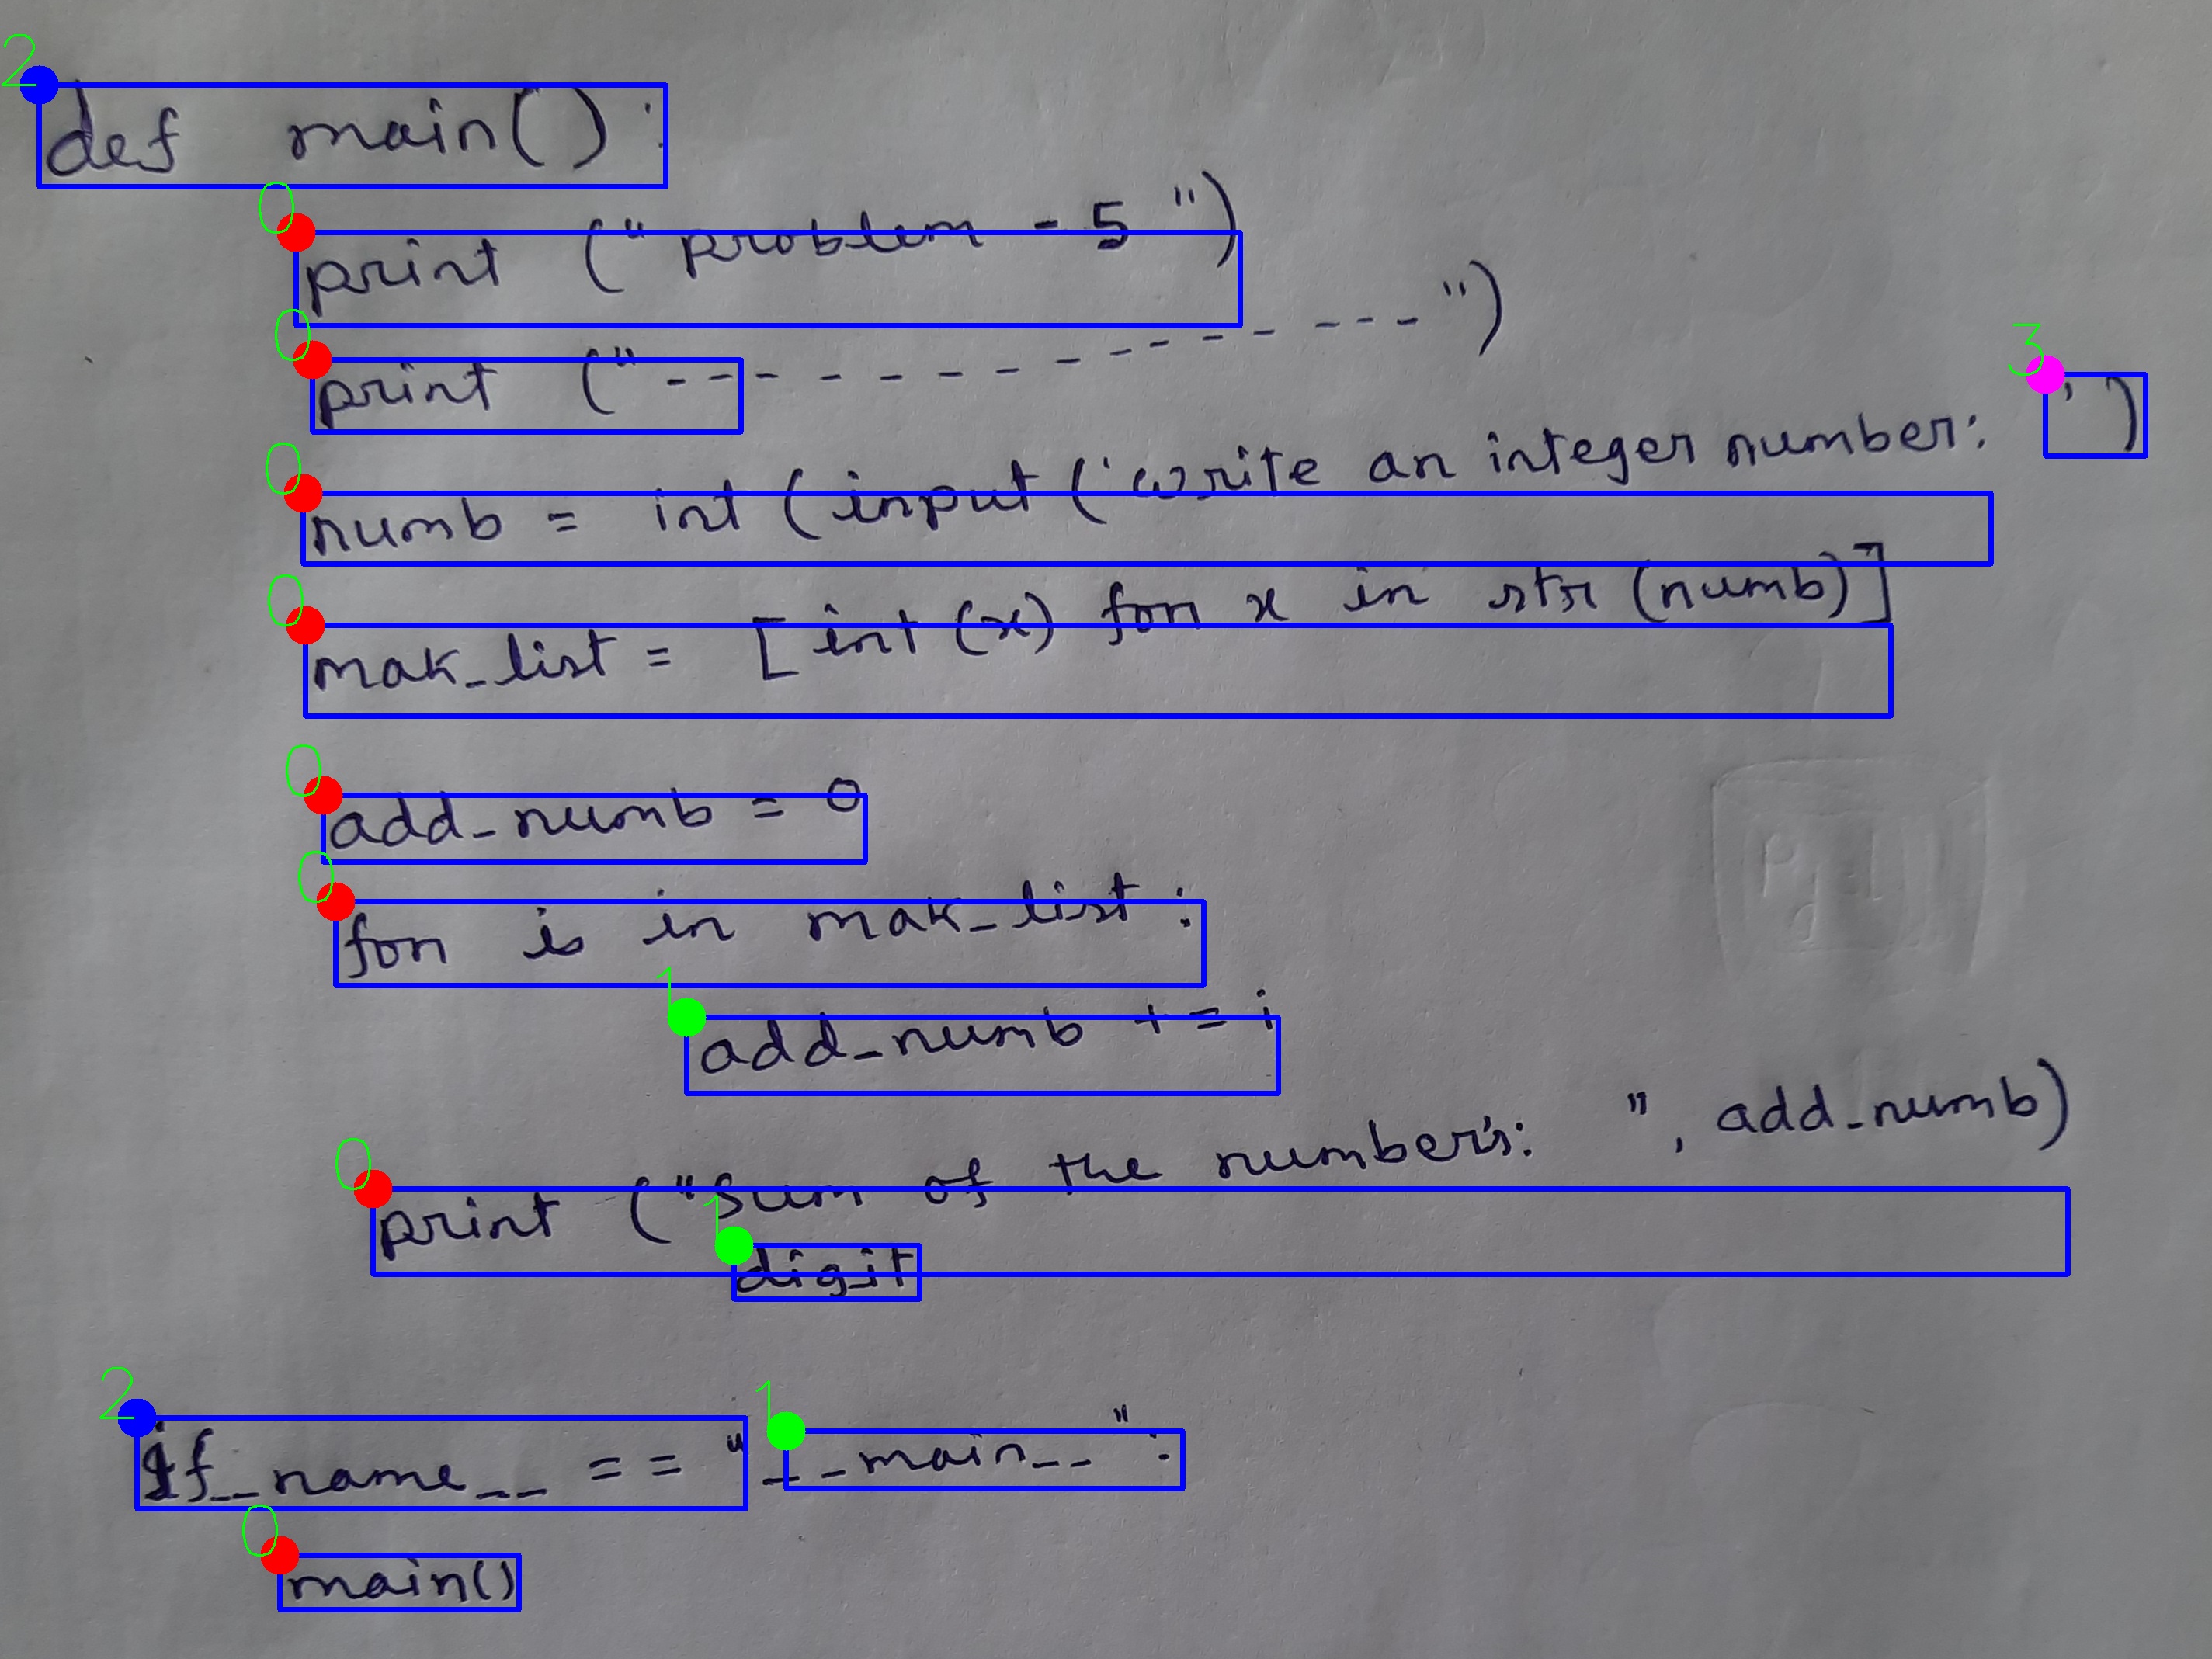 def main():
print ("problem - 5 ")
print ("----------------")
numb = int (input ('write an integer number: ')
mak_list = [int (x) for x in str (numb)]
add_numb = 0
for is in mak_list :
add_numb += i
print ("Sum of the number's: ", add_numb)
digit
if __name__ == "__main__":
main()
2
0
0
3
0
0
0
0
1
0
1
2
1
0